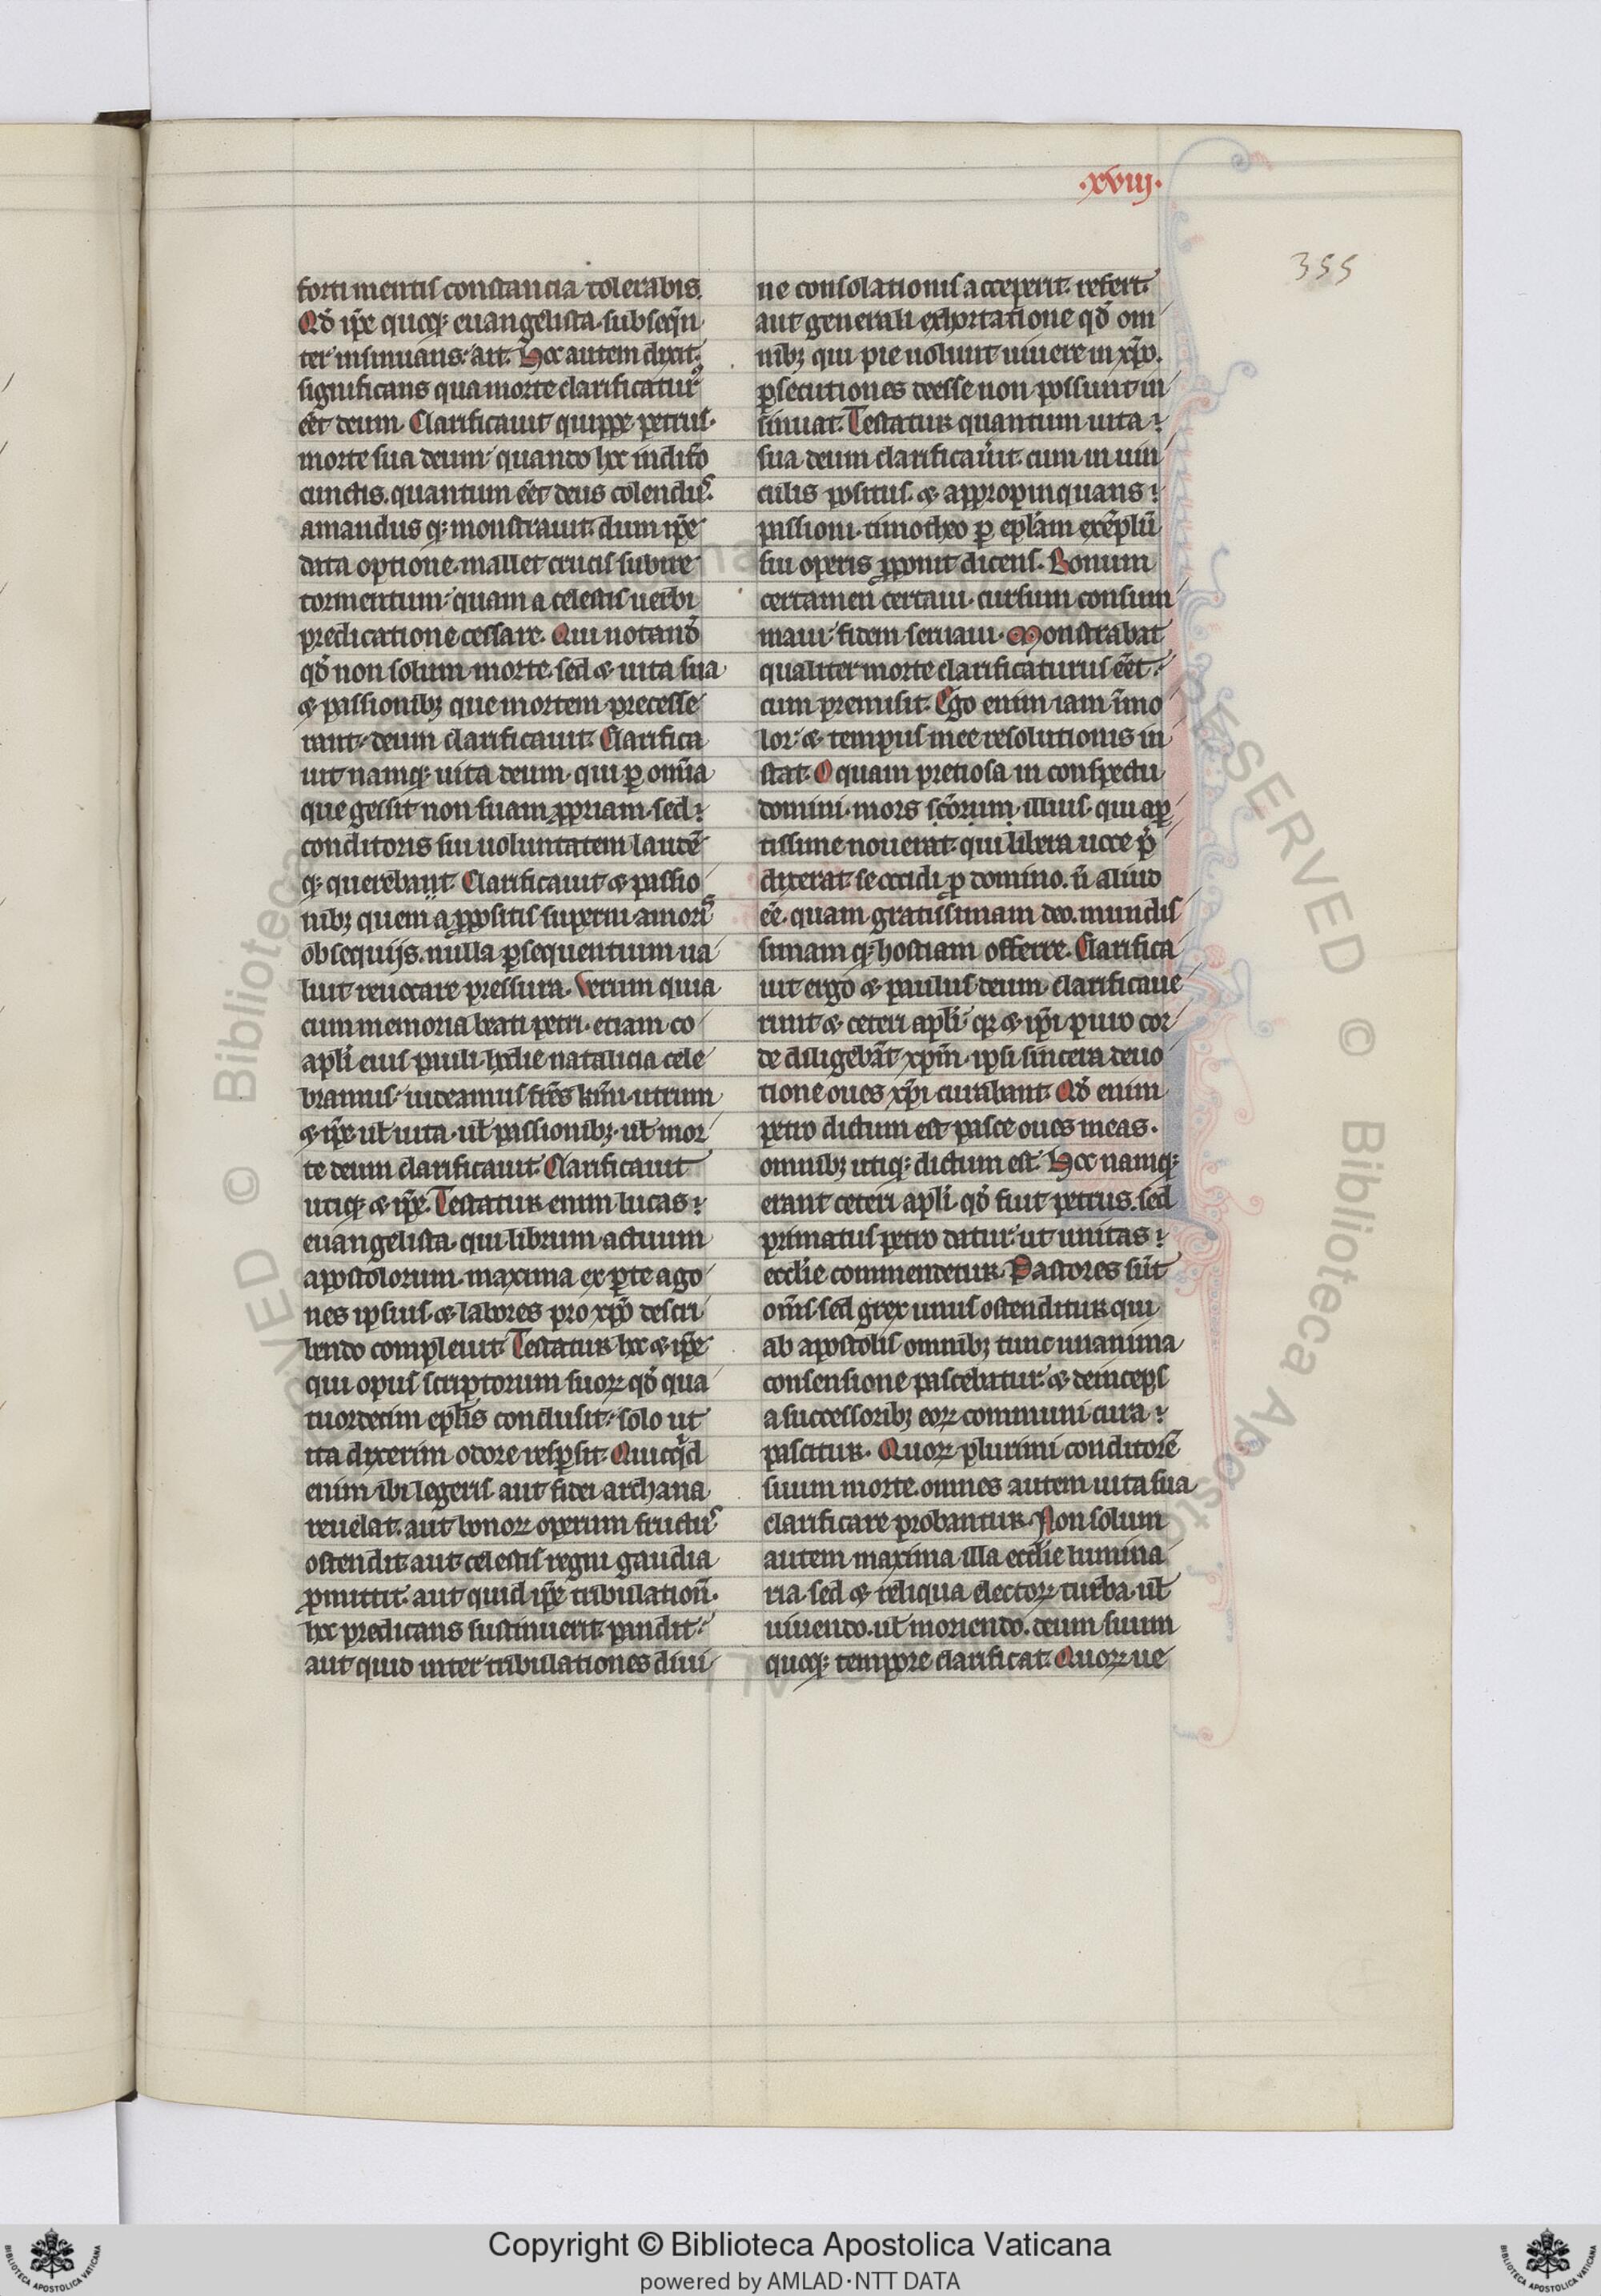 ·xviij·
355
forti mentis constancia tolerabis.
Qd̾ ip̄e quoq; euangelista. subseq̄n
ter insinuans: ait. Hoc autem dixit.
significans qua morte clarificatur᾽
eēt deum. Clarificauit quippe petrus.
morte sua deum. quando hoc indiscō
cunctis. quantum eēt deus colendus.
amandus q; monstrauit. dum ip̄e
data optione. mallet crucis subire
tormentum. quam a celestis uerbi
predicatione cessare. Qui notand̄
qd̾ non solum morte. sed & uita sua
& passionib; que mortem precesse
rant. deum clarificauit. Clarifica
uit namq; uita deum. qui ꝑ om̄ia
que gessit non suam ꝓpriam. sed
conditoris sui uoluntatem laudē
q; querebant. Clarificauit & passio
nib; quem a ꝓpositis superni amoris
obsequijs. nulla ꝑsequentium ua
luit reuocare pressura. Verum quia
cum memoria beati petri. etiam co
apl̄i eius pauli. hodie natalicia cele
bramus. uideamus fr̄es kmī. utrum
& ip̄e ul̄ uita. ul̄ passionib;. ul̄ mor
te deum clarificauit. Clarificauit
utiq; & ip̄e. Testatur enim lucas
euangelista. qui librum actuum
apostolorum. maxima ex ꝑte ago
nes ipsius. & labores pro xp̄o descri
bendo compleuit. Testatur hoc & ip̄e
qui opus scriptorum suoꝝ qd̾ qua
tuordecim epl̄is conclusit. solo ut
ita dixerim. odore respsit. Quicq̾d
enim ibi legeris aut fidei archana
reuelat. aut bonoꝝ operum fructus
ostendit. aut celestis regni gaudia
ꝓmittit. aut quid ip̄e tribulationū.
hoc predicans sustinuerit. pandit.
aut quid inter tribulationes diui
ne consolationis acceperit. refert.
aut generali exhortatione qd̾ om
nib; qui pie uolunt uiuere in xp̄o.
ꝑsecutiones deesse non possunt in
sinuat. Testatur quantum uita
sua deum clarificau̾it. cum in uin
culis positus. & appropinquans
passioni. timotheo ꝑ epl̄am exēplū
sui operis ꝓponit dicens. Bonum
certamen certaui. cursum consum
maui. fidem seruaui. Monstrabat
qualiter morte clarificaturus eēt.
cum premisit. Ego enim iam īmo
lor. & tempus mee resolutionis in
stat. O quam pretiosa in conspectu
domini. mors sc̄orum. illius. qui aꝑ
tissime nouerat. qui libera uoce p̄
dixerat. se occidi ꝓ domino. n̄ aliud
eē. quam gratissimam deo. mundis
simam q; hostiam offerre. Clarifica
uit ergo & paulus deum. clarificaue
runt & ceteri apl̄i. qꝛ & ip̄i puro cor
de diligebāt xp̄m. ipsi sincera deuo
tione oues xp̄i curabant. Qd̾ enim
petro dictum est pasce oues meas.
omnib; utiq; dictum est. Hoc namq;
erant ceteri apl̄i. qd̾ fuit petrus. sed
primatus petro datur. ut unitas
eccl̄ie commendetur. Pastores sūt
om̄s. sed grex unus ostenditur. qui
ab apostolis omnib; tunc unanima
consensione pascebatur. & deinceps
a successorib; eoꝝ communi cura
pascitur. Quoꝝ plurimi conditorē
suum morte. omnes autem uita sua
clarificare probantur. Non solum
autem maxima illa eccl̄ie lumina
ria. sed & reliqua electoꝝ turba. ul̄
uiuendo. ul̄ moriendo. deum suum
quoq; tempore clarificat. Quoꝝ ue
Copyright © Biblioteca Apostolica Vaticana
powered by AMLAD·NTT DATA